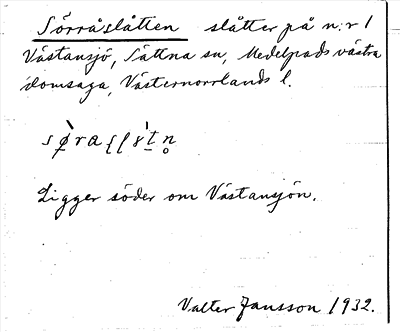 Sörråslåtten slåtter på n:r 1
Västansjö, Sättna sn, Medelpads västra
domsaga, Västernorrlands l.
Ligger söder om Västansjön.
Valter Jansson 1932.